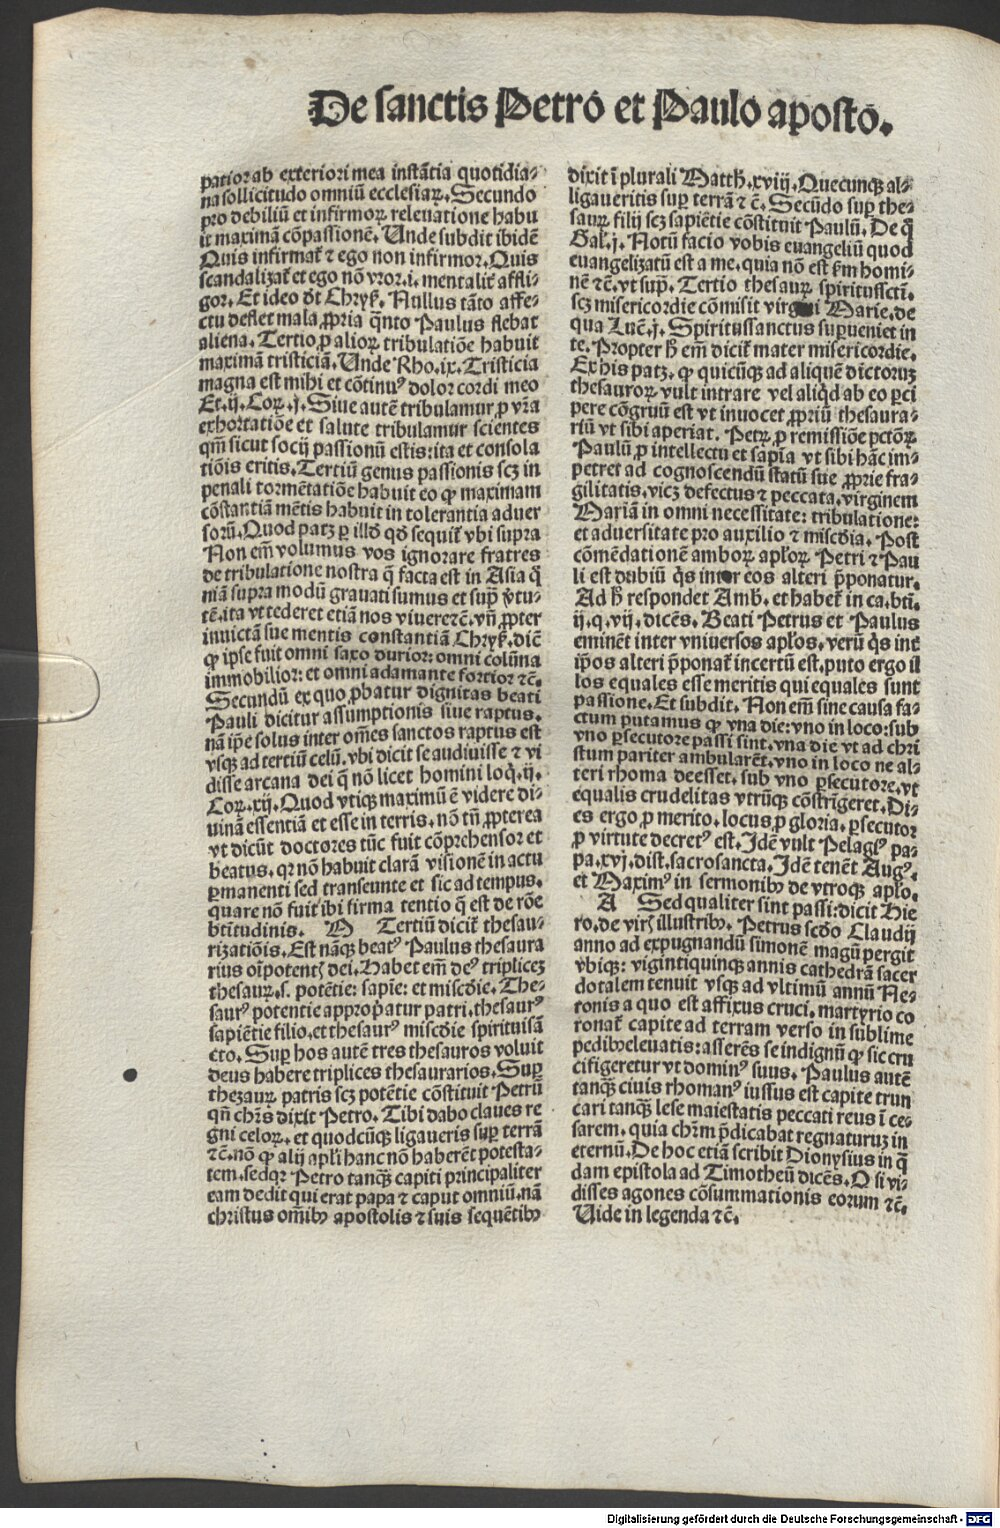 De sanctis Petro et Paulo aposto.
patior ab exteriori mea instātia quotidia-
na sollicitudo omniū ecclesiaꝝ. Secundo
pro debiliū et infirmoꝝ releuatione habu
it maximā cōpassionē. Unde subdit ibidē
Quis infirmat᷑ ⁊ ego non infirmor. Quis
scandalizat᷑ et ego nō vror.i. mentalit᷑ affli-
gor. Et ideo dt̄ Chryẜ. Nullus tāto affe-
ctu deflet mala ꝓpria q̄nto Paulus flebat
aliena. Tertio ꝓ alioꝝ tribulatiōe habuit
maximā tristiciā. Unde Rho.ix. Tristicia
magna est mihi et cōtinuꝰ dolor cordi meo
Et.ij. Coꝝ.j. Siue autē tribulamur ꝓ vr̄a
exhortatiōe et salute tribulamur scientes
qm̄ sicut socij passionū estis: ita et consola
tiōis eritis. Tertiū genus passionis scꝫ in
penali tormētatiōe habuit eo ꝙ maximam
cōstantiā mētis habuit in tolerantia aduer
sorū. Quod patꝫ ꝑ illd̄ qd̄ sequit᷑ vbi supra
Non em̄ volumus vos ignorare fratres
de tribulatione nostra q̄ facta est in Asia qm̄
niā supra modū grauati sumus et sup̄ v̄tu-
tē. ita vt tederet etiā nos viuere ⁊c̄. vn̄ ꝓpter
inuictā sue mentis constantiā Chryẜ. dic̄
ꝙ ipse fuit omni saxo durior: omni colūna
immobilior: et omni adamante fortior ⁊c̄.
Secundū ex quo ꝓbatur dignitas beati
Pauli dicitur assumptionis siue raptus.
nā ip̄e solus inter om̄es sanctos raptus est
vsqꝫ ad tertiū celū. vbi dicit se audiuisse ⁊ vi
disse arcana dei q̄ nō licet homini loq̇. ij.
Coꝝ.xij. Quod vtiqꝫ maximū ē videre di-
uinā essentiā et esse in terris. nō tn̄ ꝓpterea
vt dicūt doctores tūc fuit cōprehensor et
beatus. qꝛ nō habuit clarā visionē in actu
ꝑmanenti sed transeunte et sic ad tempus.
quare nō fuit ibi firma tentio q̄ est de rōe
btītudinis. Tertiū dicit᷑ thesau-
rizatiōis. Est nāqꝫ beatꝰ Paulus thesaura
rius oīpotentꝭ dei. Habet em̄ deꝰ triplicez
thesauꝝ.s. potētie: sapīe: et miscd̄ie. The-
saurꝰ potentie approp̄atur patri. thesaurꝰ
sapiētie filio. et thesaurꝰ miscd̄ie spirituisā
cto. Suꝑ hos autē tres thesauros voluit
deus habere triplices thesaurarios. Suꝑ
thezauꝝ patris scꝫ potētie cōstituit Petrū
qn̄ chr̄s dixit Petro. Tibi dabo claues re
gni celoꝝ. et quodcūqꝫ ligaueris suꝑ terrā
⁊c̄. nō ꝙ alij apl̄i hanc nō haberēt potesta-
tem. sed qꝛ Petro tanqꝫ capiti principaliter
eam dedit qui erat papa ⁊ caput omniū. nā
christus om̄ibꝰ apostolis ⁊ suis sequētibꝰ
dixit ī plurali Matth̄.xviij. Quecunqꝫ al-
ligaueritis suꝑ terrā ⁊c̄. Secūdo suꝑ the-
sauꝝ filij scꝫ sapiētie cōstituit Paulū. De q̇
Gal̄.j. Notū facio vobis euangeliū quod
euangelizatū est a me. quia nō est ẜm homi-
nē ⁊c̄. vt suꝑ. Tertio thesauꝝ spiritussctī.
scꝫ misericordie cōmisit virgini Marie. de
qua Luc̄.j. Spiritussanctus suꝑueniet in
te. Propter h̄ em̄ dicit᷑ mater misericordie.
Ex his patꝫ. ꝙ quicūqꝫ ad aliquē dictoruꝫ
thesauroꝝ vult intrare vel aliq̇d ab eo ꝑci
pere cōgruū est vt inuocet ꝓpriū thesaura-
riū vt sibi aperiat. Petꝝ ꝓ remissiōe pctōꝝ
Paulū ꝓ intellectu et sapīa vt sibi hāc im-
petret ad cognoscendū statū sue ꝓprie fra-
gilitatis. vicꝫ defectus ⁊ peccata. virginem
Mariā in omni necessitate: tribulatione:
et aduersitate pro auxilio ⁊ miscd̄ia. Post
cōmēdationē amboꝝ apl̄oꝝ Petri ⁊ Pau
li est dubiū q̇s inter eos alteri p̄ponatur.
Ad h̄ respondet Amb̄. et habet᷑ in ca. btī.
ij.q.vij. dicēs. Beati Petrus et Paulus
eminēt inter vniuersos apl̄os. verū q̇s int̄
ip̄os alteri p̄ponat᷑ incertū est. puto ergo il
los equales esse meritis qui equales sunt
passione. Et subdit. Non em̄ sine causa fa-
ctum putamus ꝙ vna die: vno in loco: sub
vno ꝑsecutore passi sint. vna die vt ad chri
stum pariter ambularēt. vno in loco ne al-
teri rhoma deesset. sub vno ꝑsecutore. vt
equalis crudelitas vtrūqꝫ cōstrīgeret. Di-
es ergo ꝓ merito. locus ꝓ gloria. ꝑsecutor
ꝓ virtute decretꝰ est. Idē vult Pelagꝰ pa-
pa. xvj. dist. sacrosancta. Idē tenēt Augꝰ.
et Maximꝰ in sermonibꝰ de vtroqꝫ apl̄o.
A Sed qualiter sint passi: dicit Hie
ro. de virꝭ illustribꝰ. Petrus scd̄o Claudij
anno ad expugnandū simonē magū pergit
vbiqꝫ: vigintiquinqꝫ annis cathedrā sacer
dotalem tenuit vsqꝫ ad vltimū annū Ne-
ronis a quo est affixus cruci. martyrio co
ronat᷑ capite ad terram verso in sublime
pedibꝰ eleuatis: asserēs se indignū ꝙ sic cru
cifigeretur vt dominꝰ suus. Paulus autē
tanqꝫ ciuis rhomanꝰ iussus est capite trun
cari tanqꝫ lese maiestatis peccati reus ī ce-
sarem. quia chr̄m p̄dicabat regnaturuꝫ in
eternū. De hoc etiā scribit Dionysius in q̄
dam epistola ad Timotheū dicēs. O si vi-
disses agones cōsummationis eorum ⁊c̄.
Uide in legenda ⁊c̄.
Digitalisierung gefördert durch die Deutsche Forschungsgemeinschaft - DFG